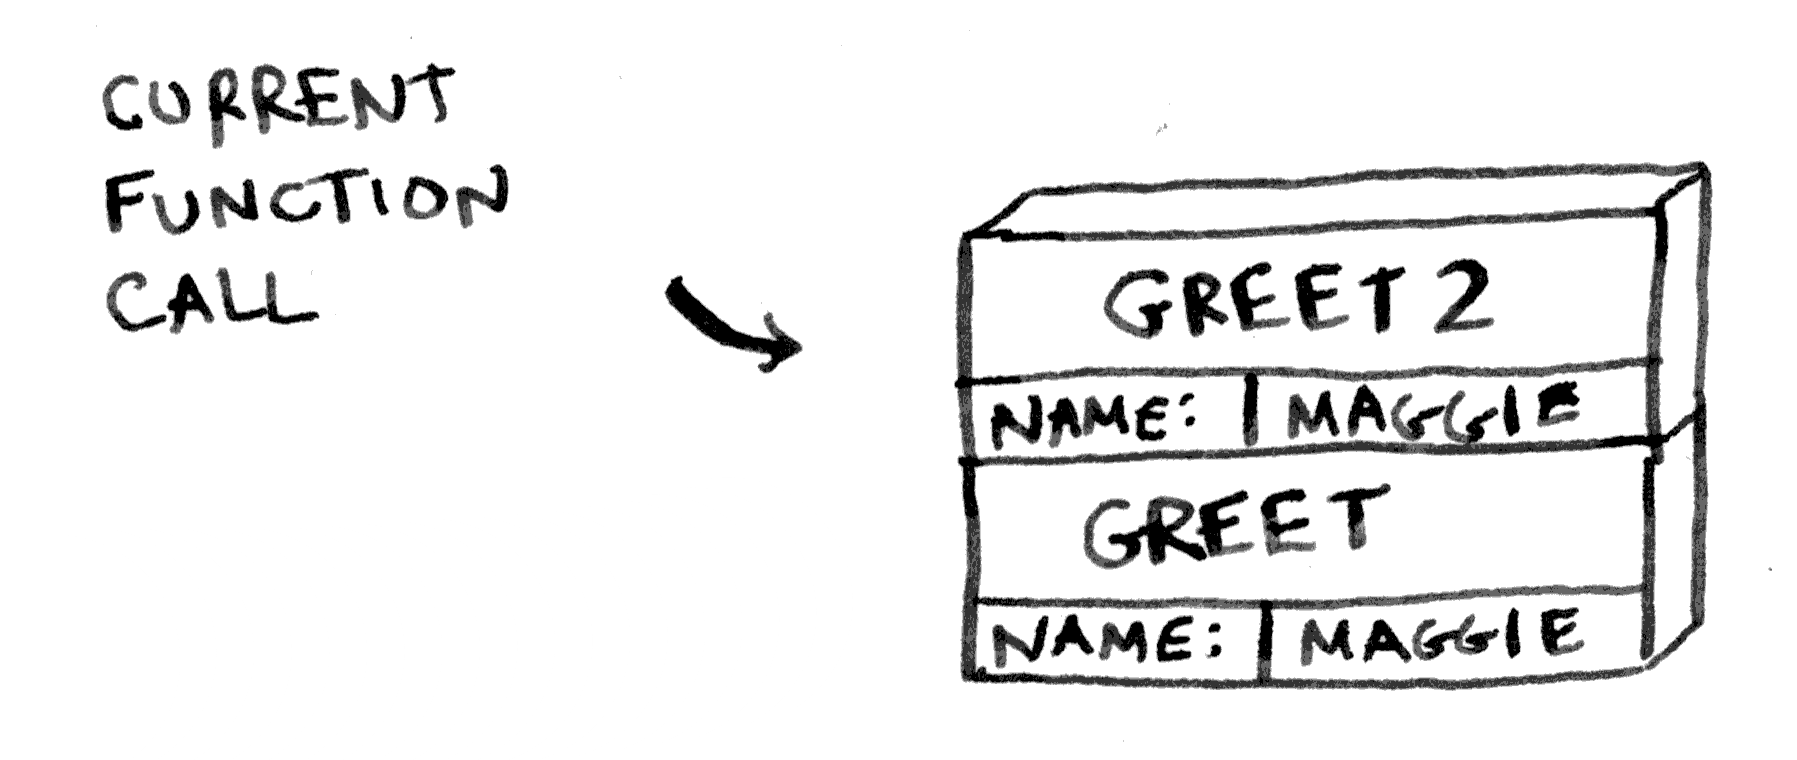 CURRENT
FUNCTION
CALL
GREET2
NAME: MAGGIE
GREET
NAME: MAGGIE